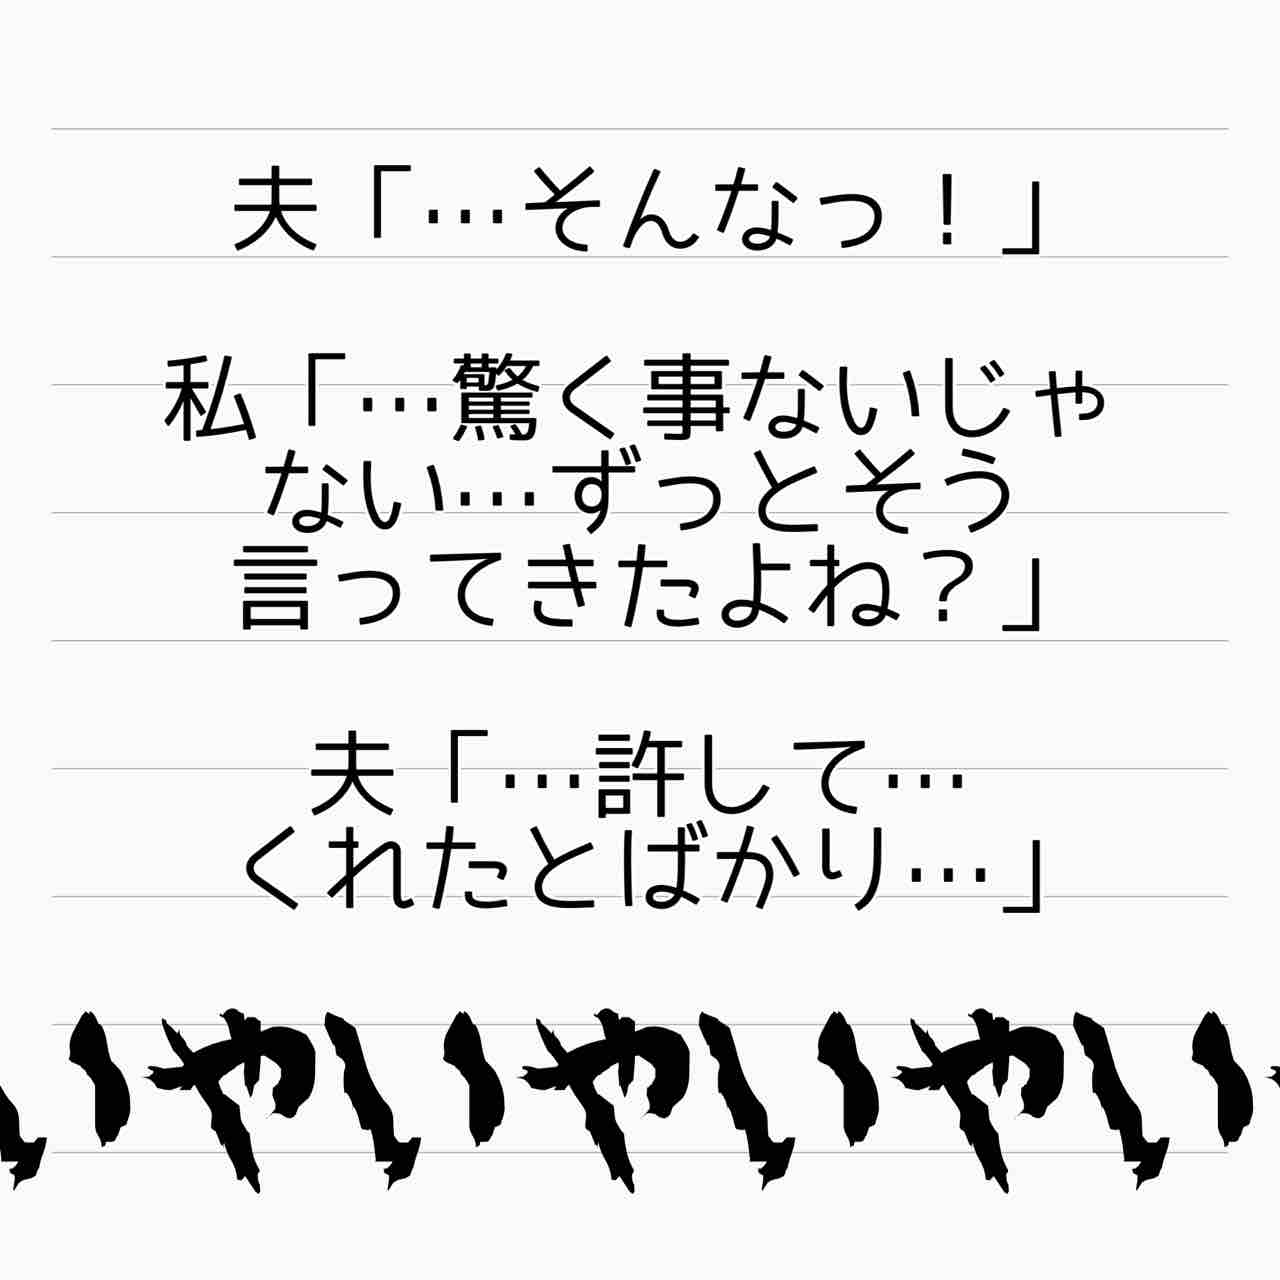 夫「…そんなっ！」
私「…驚く事ないじゃ
ない…ずっとそう
言ってきたよね？」
夫「…許して…
くれたとばかり…」
いやいやいやい